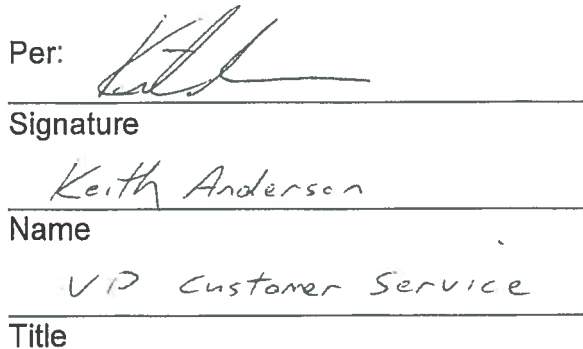 Per:
Signature
Keith Anderson
Name
VP Customer Service
Title